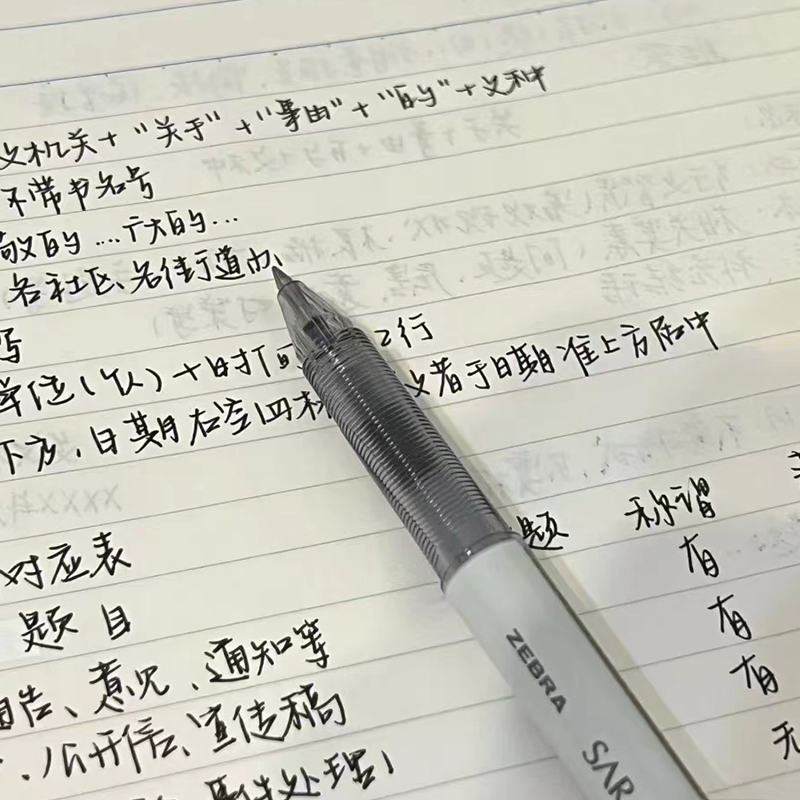 文机关+“关于”+“事由”+“的”+文种
不带书名号
敬的…广大的…
各社区、各街道办、
写
单位(个人)+时间 2行
下方,日期右空四 者于日期准上方居中
对应表
题 称谓
题目
有
意见、通知等
有
、公开信、宣传稿
有
无
处理)
ZEBRA
SAR
XXXX